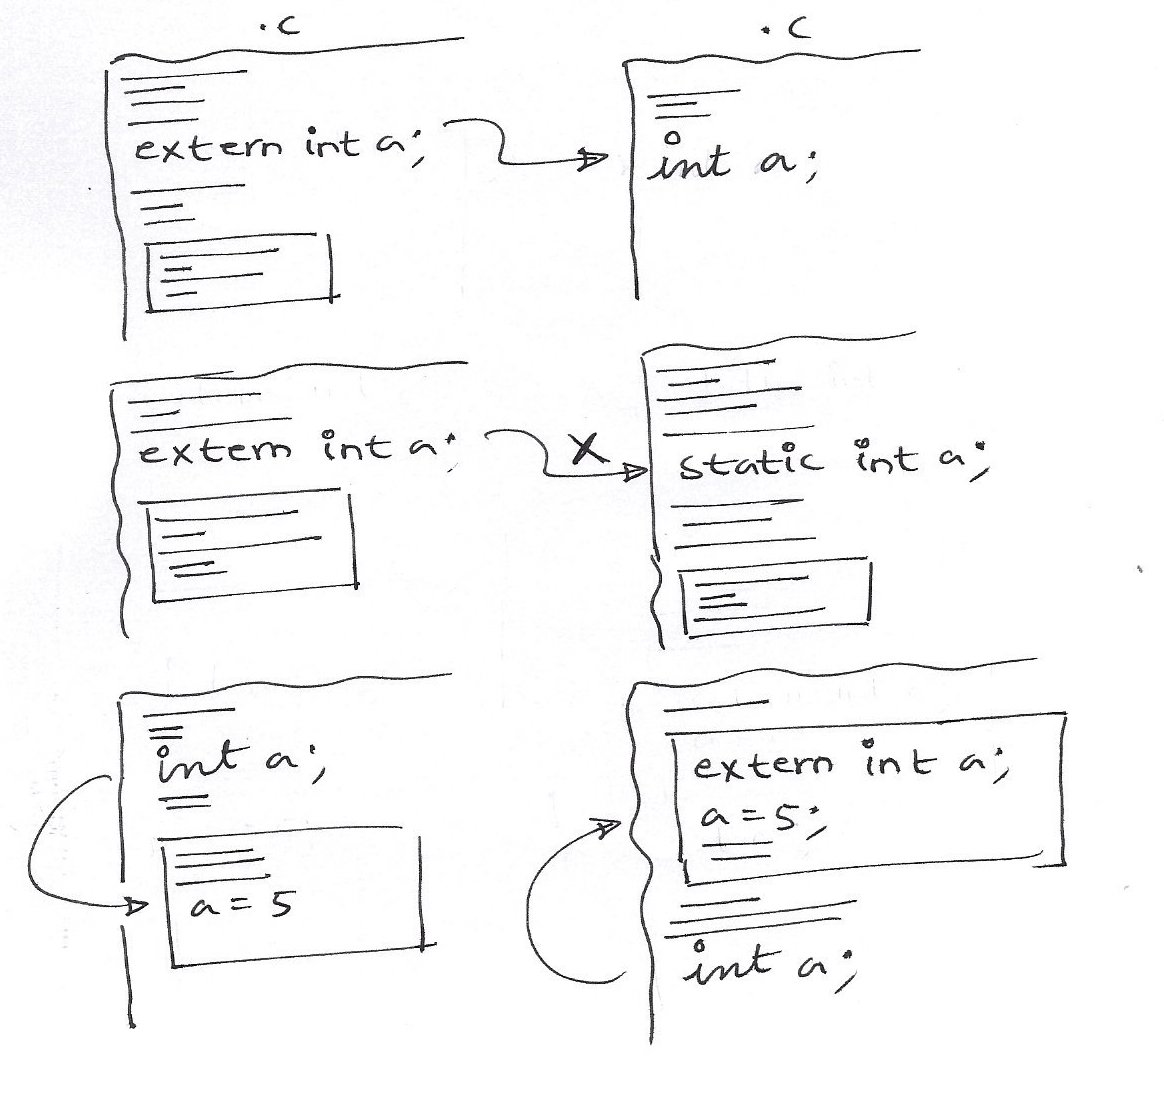 .c
.c
extern int a;
int a;
extern int a;
X
static int a;
int a;
a = 5
extern int a;
a = 5;
int a;